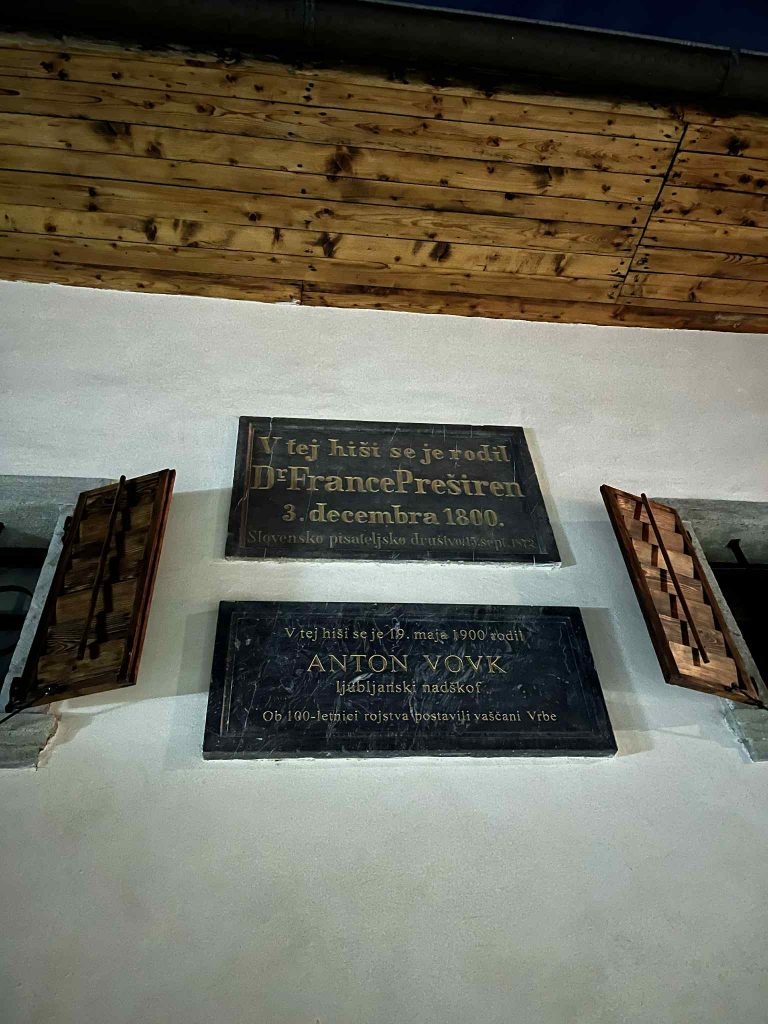 V tej hiši se je rodil
Dr France Preširen
3. decembra 1800.
Slovensko pisateljsko društvo, 15. sept. 1872
V tej hiši se je 19. maja 1900 rodil
ANTON VOVK
ljubljanski nadškof
Ob 100-letnici rojstva postavili vaščani Vrbe